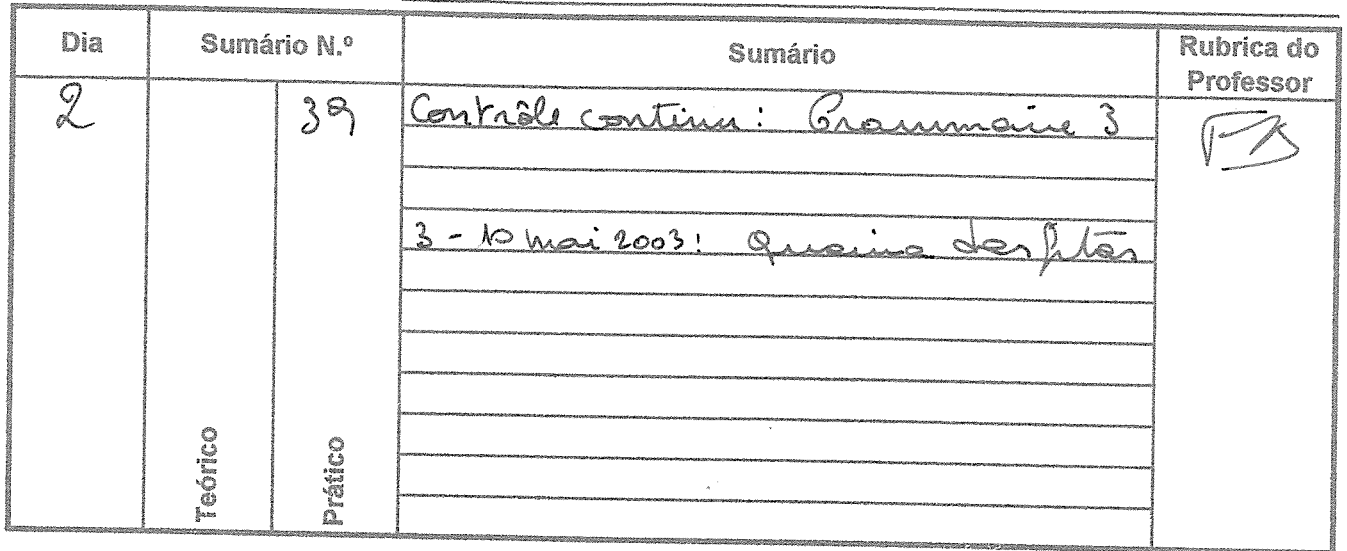 Dia Sumário N.º Sumário Rubrica do Professor
2 39 Contrôle continu: Grammaire 3
3 - 10 mai 2003: Queima das fitas
Teórico Prático